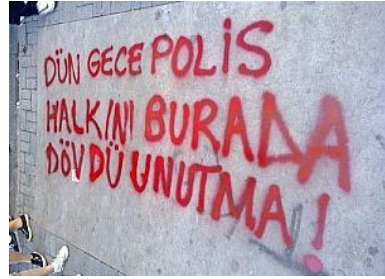 DÜN GECE POLİS
HALKINI BURADA
DÖVDÜ UNUTMA!